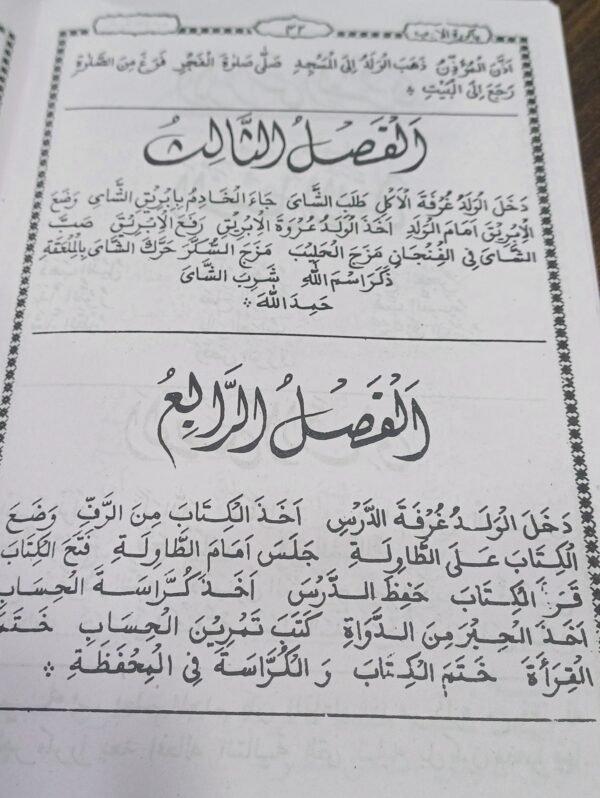 باكورة الادب
٣٢
اَذَّنَ الْمُؤَذِّنُ ذَهَبَ الْوَلَدُ اِلَى الْمَسْجِدِ صَلّٰى صَلٰوةَ الْفَجْرِ فَرَغَ مِنَ الصَّلٰوةِ
رَجَعَ اِلَى الْبَيْتِ ؞
اَلْفَصْلُ الثَّالِثُ
دَخَلَ الْوَلَدُ غُرْفَةَ الْاَكْلِ طَلَبَ الشَّاىَ جَاءَ الْخَادِمُ بِاِبْرِيْقِ الشَّاىِ وَضَعَ
الْاِبْرِيْقَ اَمَامَ الْوَلَدِ اَخَذَ الْوَلَدُ عُرْوَةَ الْاِبْرِيْقِ رَفَعَ الْاِبْرِيْقَ صَبَّ
الشَّاىَ فِى الْفِنْجَانِ مَزَجَ الْحَلِيْبَ مَزَجَ السُّكَّرَ حَرَّكَ الشَّاىَ بِالْمِلْعَقَةِ
ذَكَرَ اسْمَ اللّٰهِ شَرِبَ الشَّاىَ
حَمِدَ اللّٰهَ ؞
اَلْفَصْلُ الرَّابِعُ
دَخَلَ الْوَلَدُ غُرْفَةَ الدَّرْسِ اَخَذَ الْكِتَابَ مِنَ الرَّفِّ وَضَعَ
الْكِتَابَ عَلَى الطَّاوِلَةِ جَلَسَ اَمَامَ الطَّاوِلَةِ فَتَحَ الْكِتَابَ
قَرَأَ الْكِتَابَ حَفِظَ الدَّرْسَ اَخَذَ كُرَّاسَةَ الْحِسَابِ
اَخَذَ الْحِبْرَ مِنَ الدَّوَاةِ كَتَبَ تَمْرِيْنَ الْحِسَابِ خَتَمَ
الْقِرَأَةَ خَتَمَ الْكِتَابَ وَ الْكُرَّاسَةَ فِى الْمِحْفَظَةِ ؞